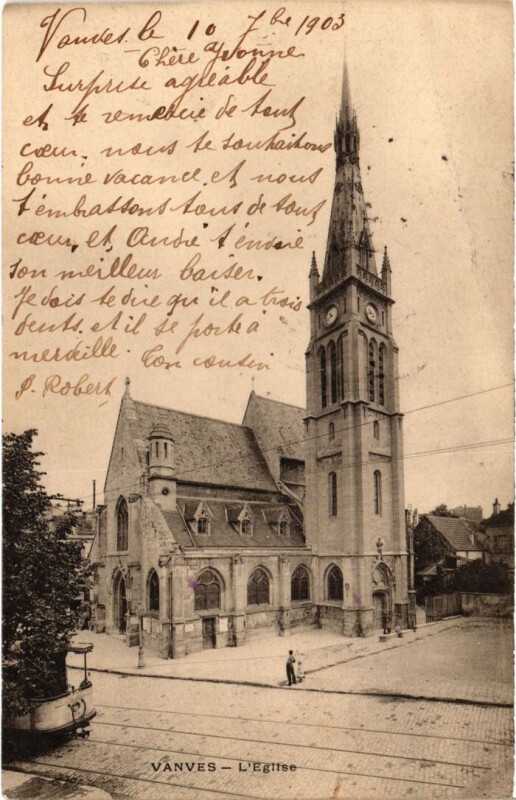 Vanves le 10 7bre 1903
Chère Yvonne
Surprise agréable
et te remercie de tout
cœur. nous te souhaitons
bonne vacance et nous
t'embrassons tous de tout
cœur et André t'envoie
son meilleur baiser.
Je dois te dire qu'il a trois
dents. et il se porte à
merveille. Ton cousin
P. Robert
VANVES – L'Eglise